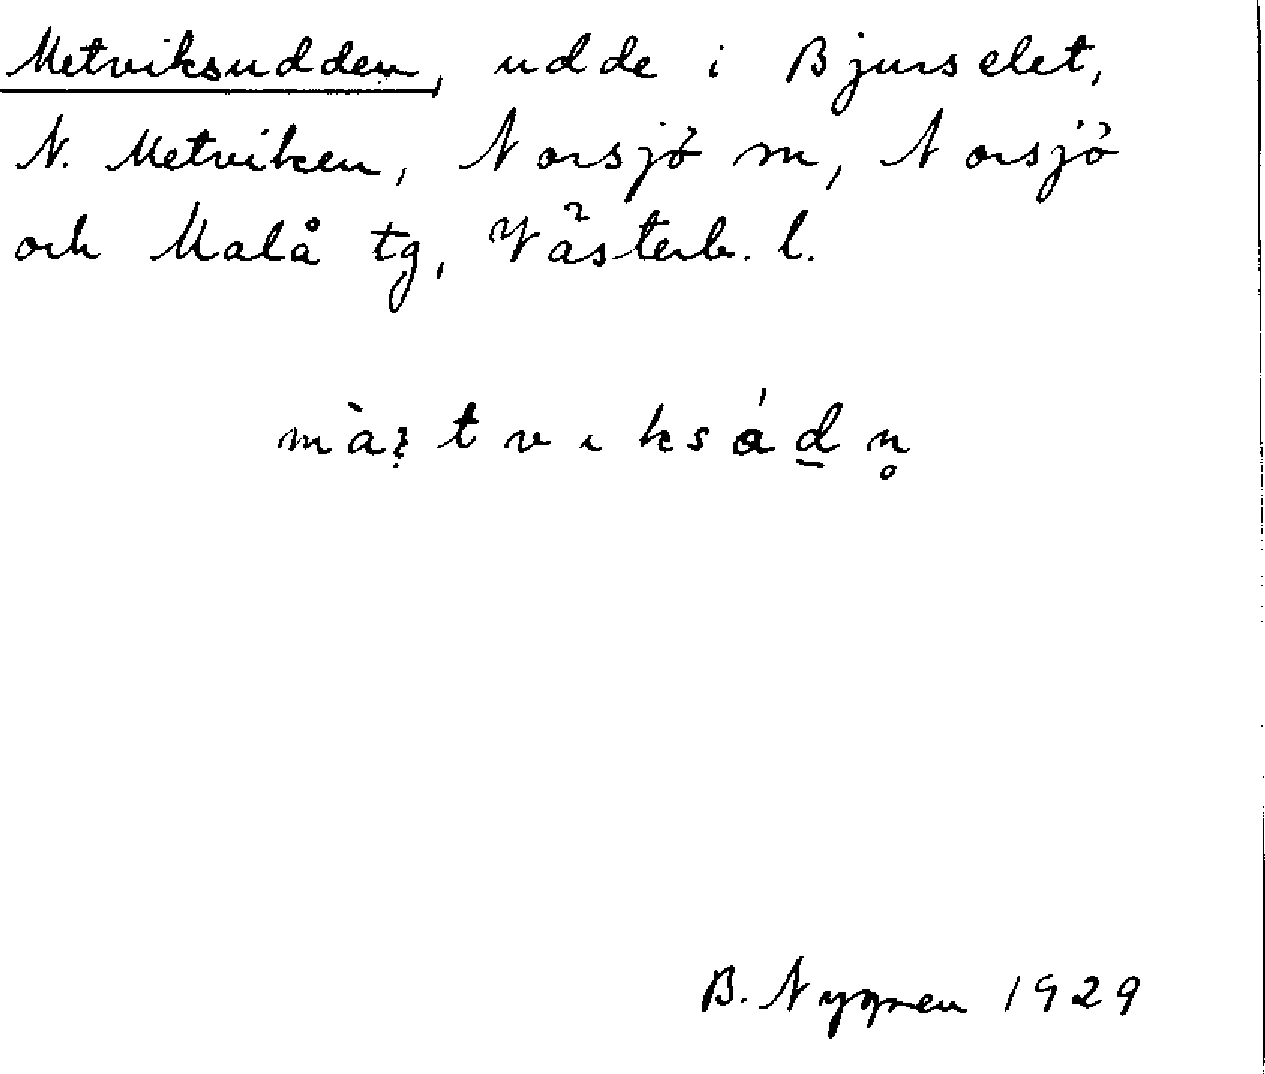 Metviksudden, udde i Bjurselet,
N. Metviken, Norsjö m, Norsjö
och Malå tg, Västerb. l.
B. Nygren 1929